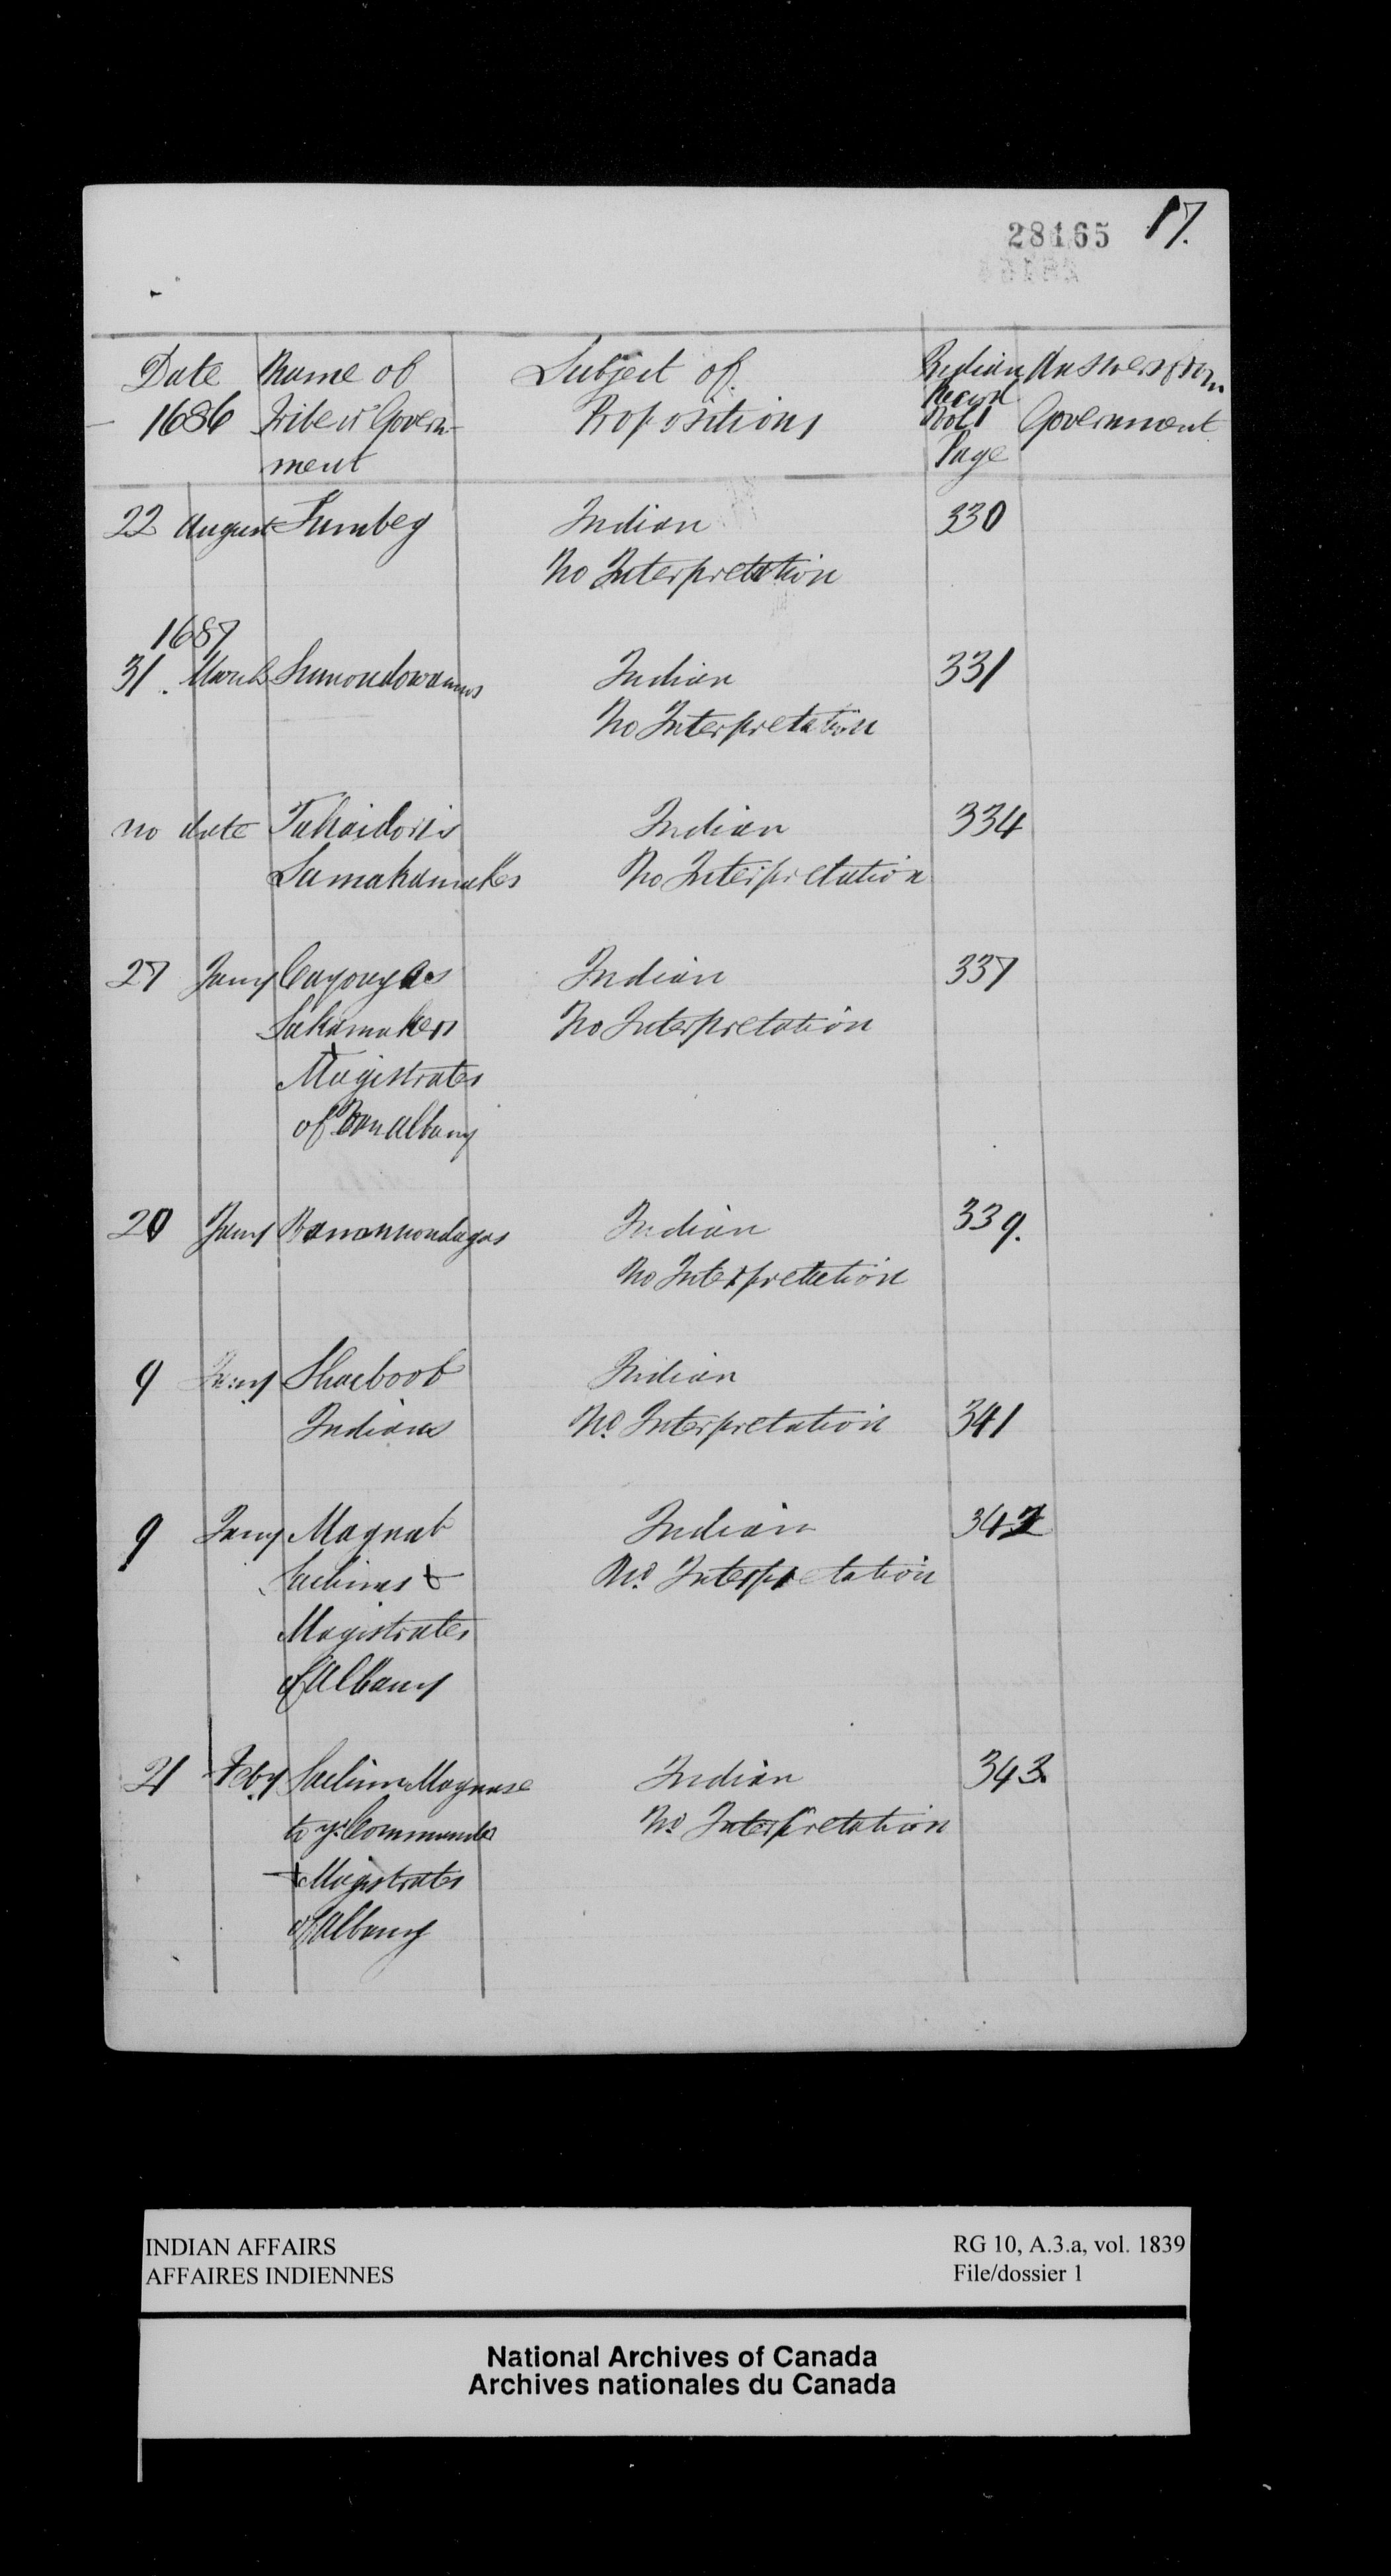 28165 17.
Date Name of Subject of Indian Answers from
1686 Tribe or Govern- Propositions Record Vol 1 Government
ment Page
22 August Indian 330
No Interpretation
1687
31. March Indian 331
No Interpretation
no date Indian 334
No Interpretation
27 Jany Cayougas Indian 337
Sakamakers No Interpretation
+ Magistrates
of Albany
20 Jany Indian 339.
No Interpretation
9 Jany Indian
Indians No. Interpretation 341
9 Jany Maquat Indian 342
Sachims & No. Interpretation
Magistrates
of Albany
21 Feby Sachim Maquase Indian 343
to ye Commander No. Interpretation
+ Magistrates
of Albany
INDIAN AFFAIRS RG 10, A.3.a, vol. 1839
AFFAIRES INDIENNES File/dossier 1
National Archives of Canada
Archives nationales du Canada